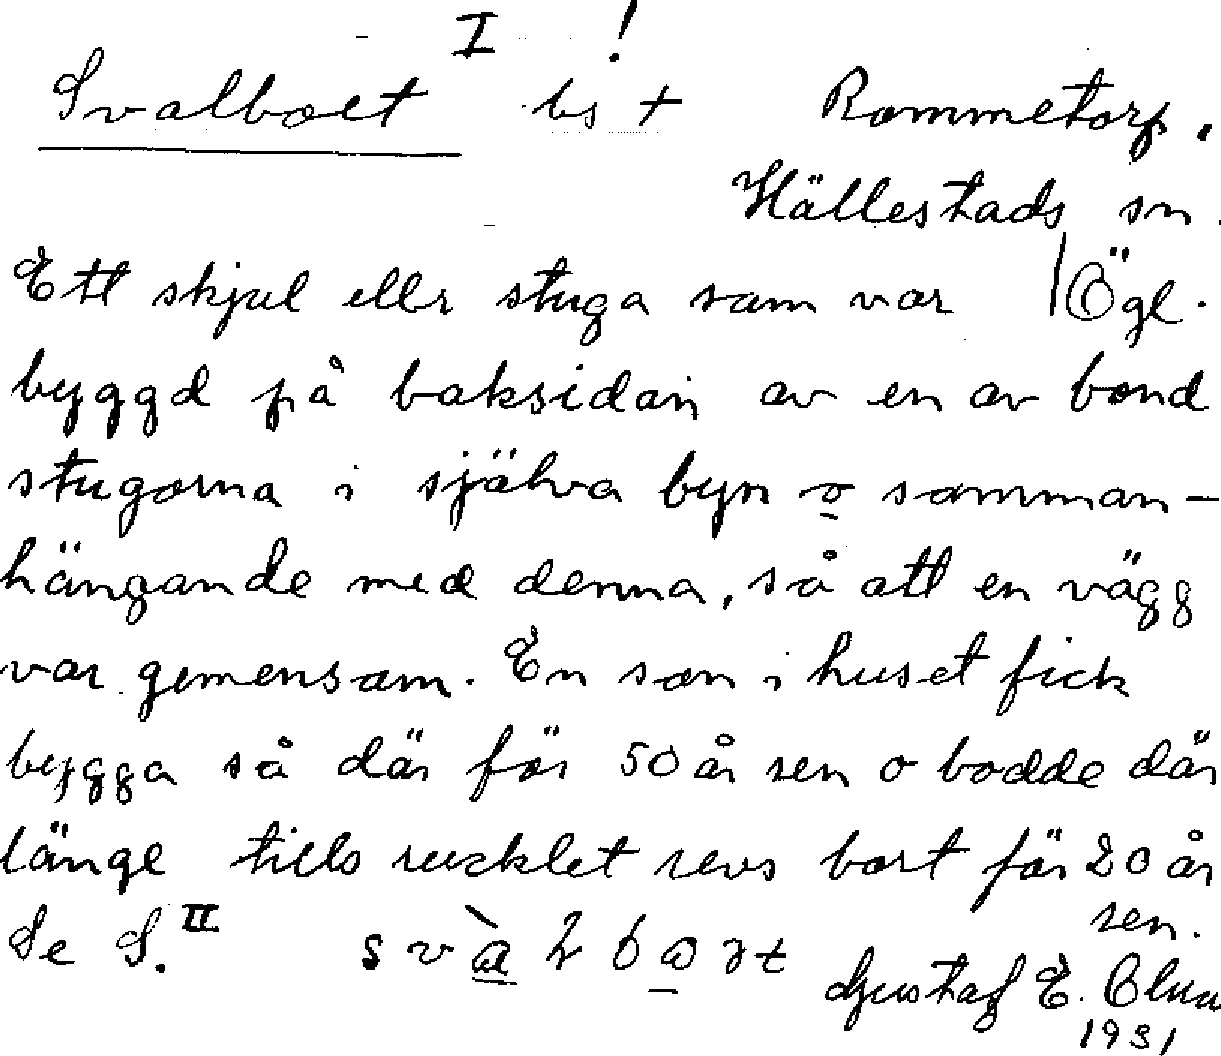 I !
Svalboet bs + Rommetorp.
Hällestads sn.
Ett skjul eller stuga som var Ögl.
byggd på baksidan av en av bond
stugorna i själva byn o samman-
hängande med denna, så att en vägg
var gemensam. En son i huset fick
bygga så där för 50 år sen o bodde där
länge tills rucklet revs bort för 20 år
sen.
Se S. II
Gustaf E.
1931